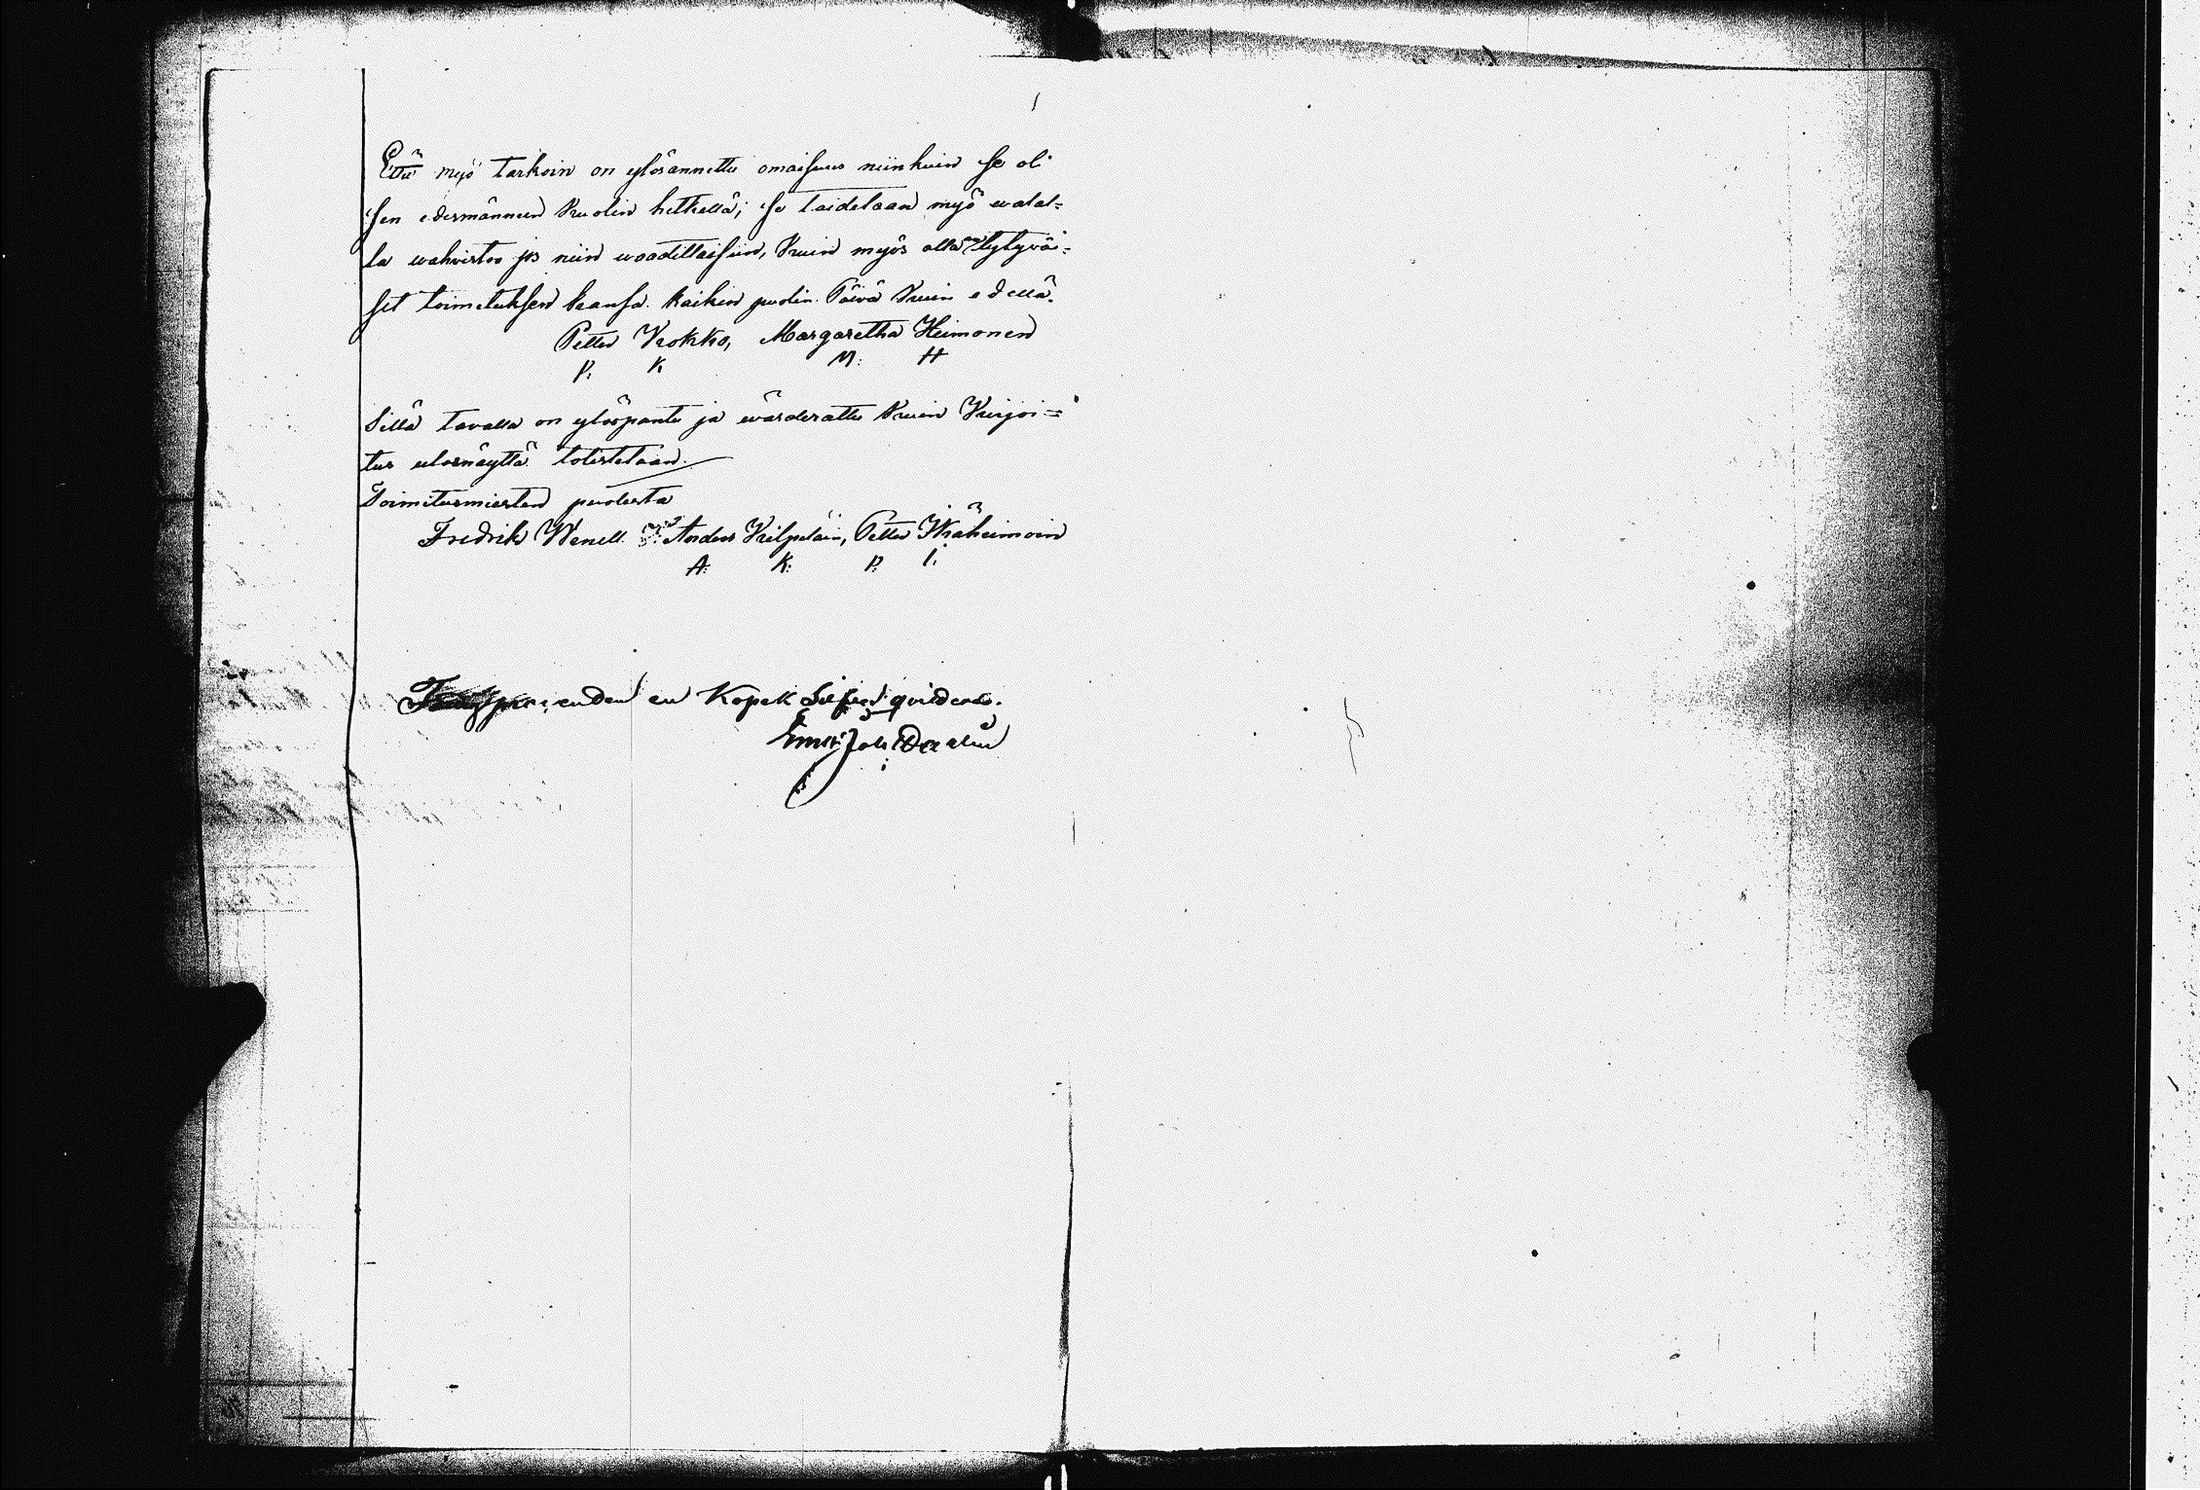 Että myö tarkoin on ylösannettu omaisuus niinkuin se oli
sen edesmänneen kuolin hetkellä; se taidetaan myö walal=
la wahvistoo jos niin waadittaisiin, kuin myös olla tytyväi=
set toimetuksen kansa. kaikin puolin. Päivä kuin edellä.
Petter Krokko, Margaretha Heimonen
P. K. M. H
Sillä tavalla on ylöspantu ja wärderattu kuin Kirjoi=
tus ulosnäyttä totistetaan.
Toimitusmiesten puolesta
Fredrik Wenell. Anders Kilpeläin, Petter Ikäheimoin
A. K. P. I.
en Kopek qvitderas.
Joh